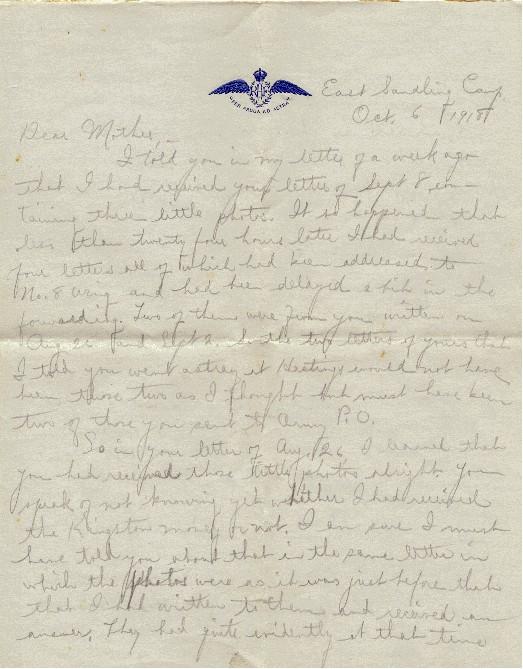 PER ARDUA AD ASTRA
East Sandling Camp,
Oct. 6 1918
Dear Mother,-
I told you in my letter of a week ago
that I had received your letter of Sept 8, con-
taining three little photos. It so happened that
less than twenty four hours later I had received
four letters all of which had been addressed to
No. 8 Wing and had been delayed a bit in the
forwarding. Two of them were from you written on
Aug 26 and Sept 2. So the two letters of yours that
I told you went astray at Hastings would not have
been those two as I thought but must have been
two of those you sent to Army P.O.
So in your letter of Aug. 26 I learned that
you had received those little photos alright. You
speak of not knowing yet whether I had received
the Kingston money or not. I am sure I must
have told you about that in the same letter in
which the photos were as it was just before that
that I had written to them and received an
answer. They had quite evidently at that time